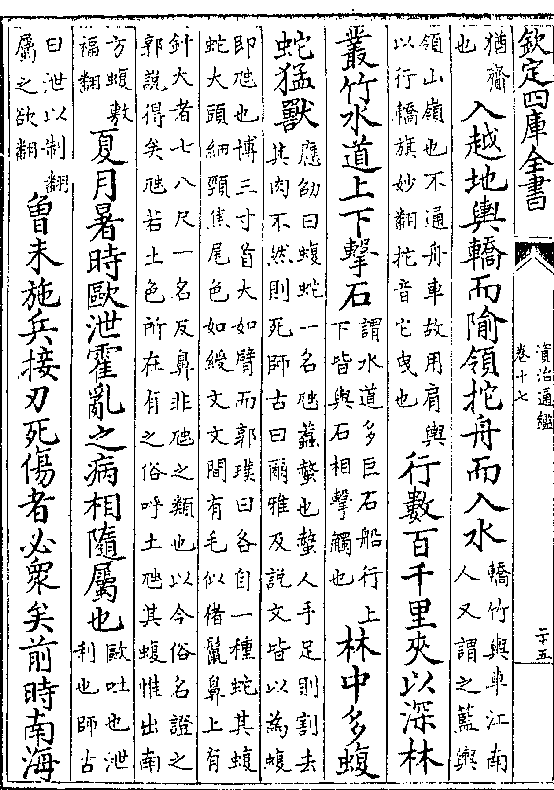 欽定四庫全書
資治通鑑
卷十七
二十五
猶齎
也
入越地輿轎而隃領拕舟而入水
轎竹輿車江南
人又謂之藍輿
領山嶺也不通舟車故用肩輿
以行轎旗妙翻拕音它曳也
行數百千里夾以深林
叢竹水道上下擊石
謂水道多巨石船行上
下皆與石相擊觸也
林中多蝮
蛇猛獸
應劭曰蝮蛇一名虺蠚螫也螫人手足則割去
其肉不然則死師古曰爾雅及說文皆以為蝮
即虺也博三寸首大如臂而郭璞曰各自一種蛇其蝮
蛇大頭細頸焦尾色如綬文文間有毛似猪鬛鼻上有
針大者七八尺一名反鼻非虺之類也以今俗名證之
郭說得矣虺若土色所在有之俗呼土虺其蝮惟出南
方蝮敷
福翻
夏月暑時歐泄霍亂之病相隨屬也
歐吐也泄
利也師古
曰泄以制翻
屬之欲翻
曾未施兵接刃死傷者必衆矣前時南海